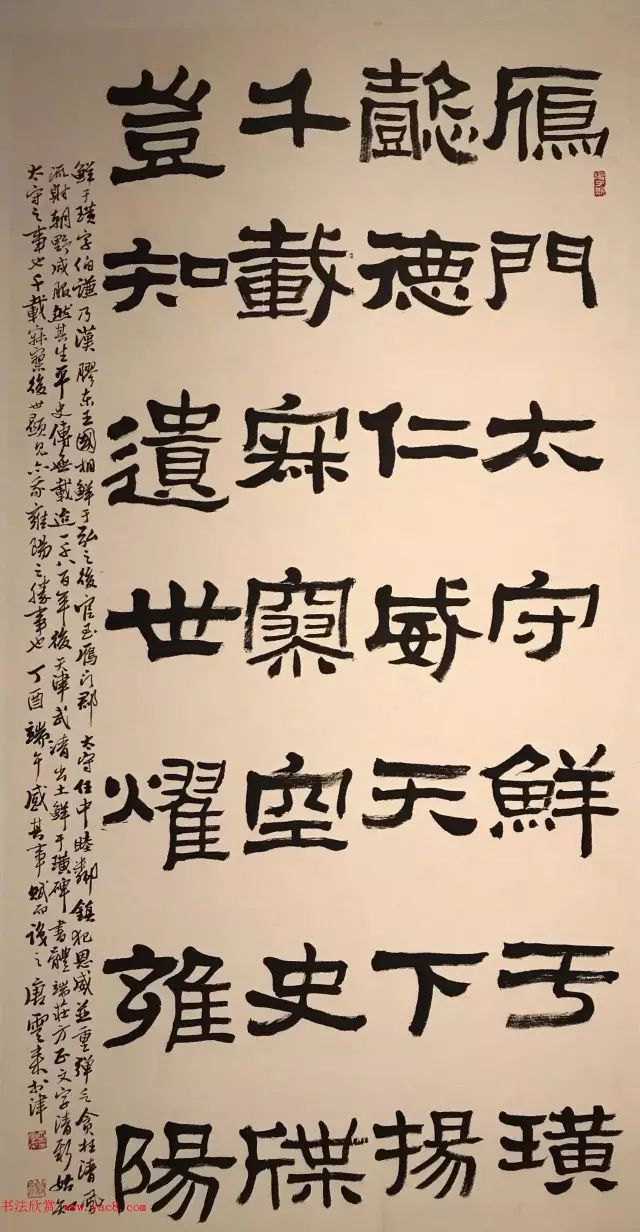 鴈門太守鮮于璜
懿德仁威天下揚
千載寂寞空史牒
豈知遺世耀雍陽
鮮于璜字伯謙乃漢膠東王國相鮮于弘之後官至鴈门郡太守任中睦鄰鎮犯恩威並重彈乞貪枉清風
流射朝野咸服然其生平史傳無載迨一千八百年後天津武清出土鮮于璜碑書體端莊方正文字清新始知
太守之事也千載寂寞後世顯見亦吾雍陽之勝事也丁酉端午感其事賦而識之唐雲來於津
书法欣赏www.yac8.com